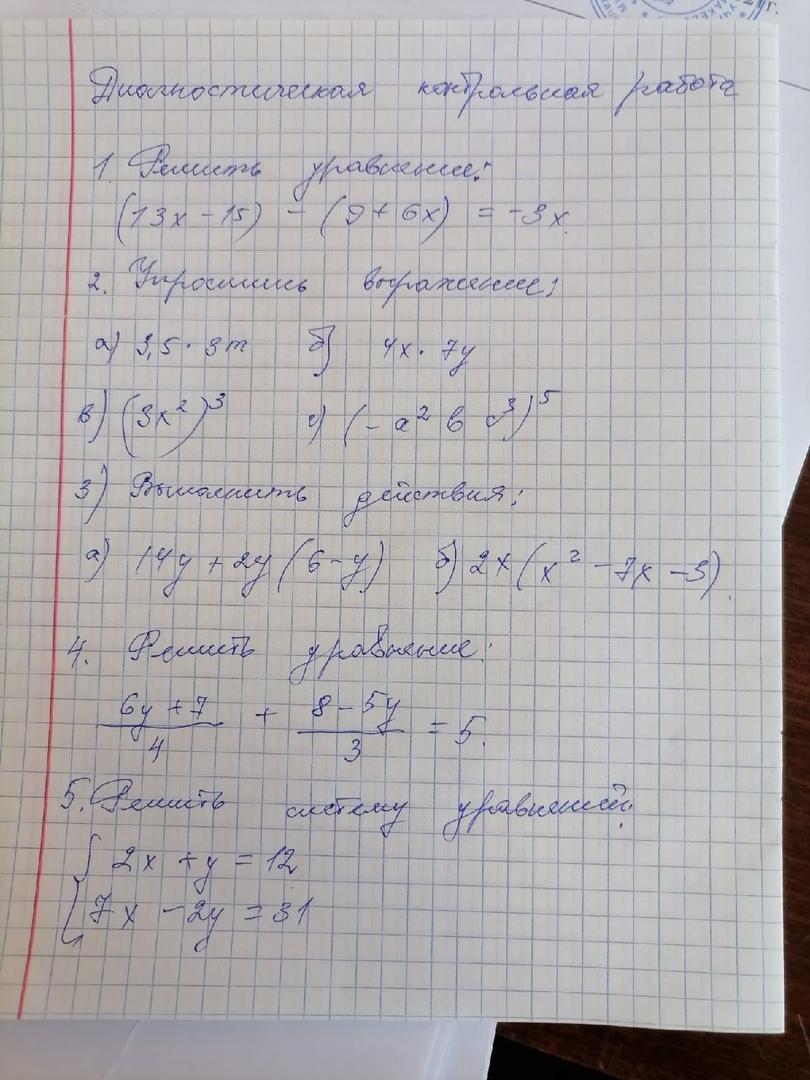 Диагностическая контрольная работа
1. Решить уравнение:
(13x - 15) - (9 + 6x) = -3x.
2. Упростить выражение:
а) 3,5 · 3m б) 4x · 7y
в) (3x²)³ г) (- a² b c³)⁵
3) Выполнить действия:
а) 14y + 2y (6 - y) б) 2x (x² - 7x - 3).
4. Решить уравнение:
(6y + 7)/4 + (8 - 5y)/3 = 5.
5. Решить систему уравнений:
{ 2x + y = 12
7x - 2y = 31